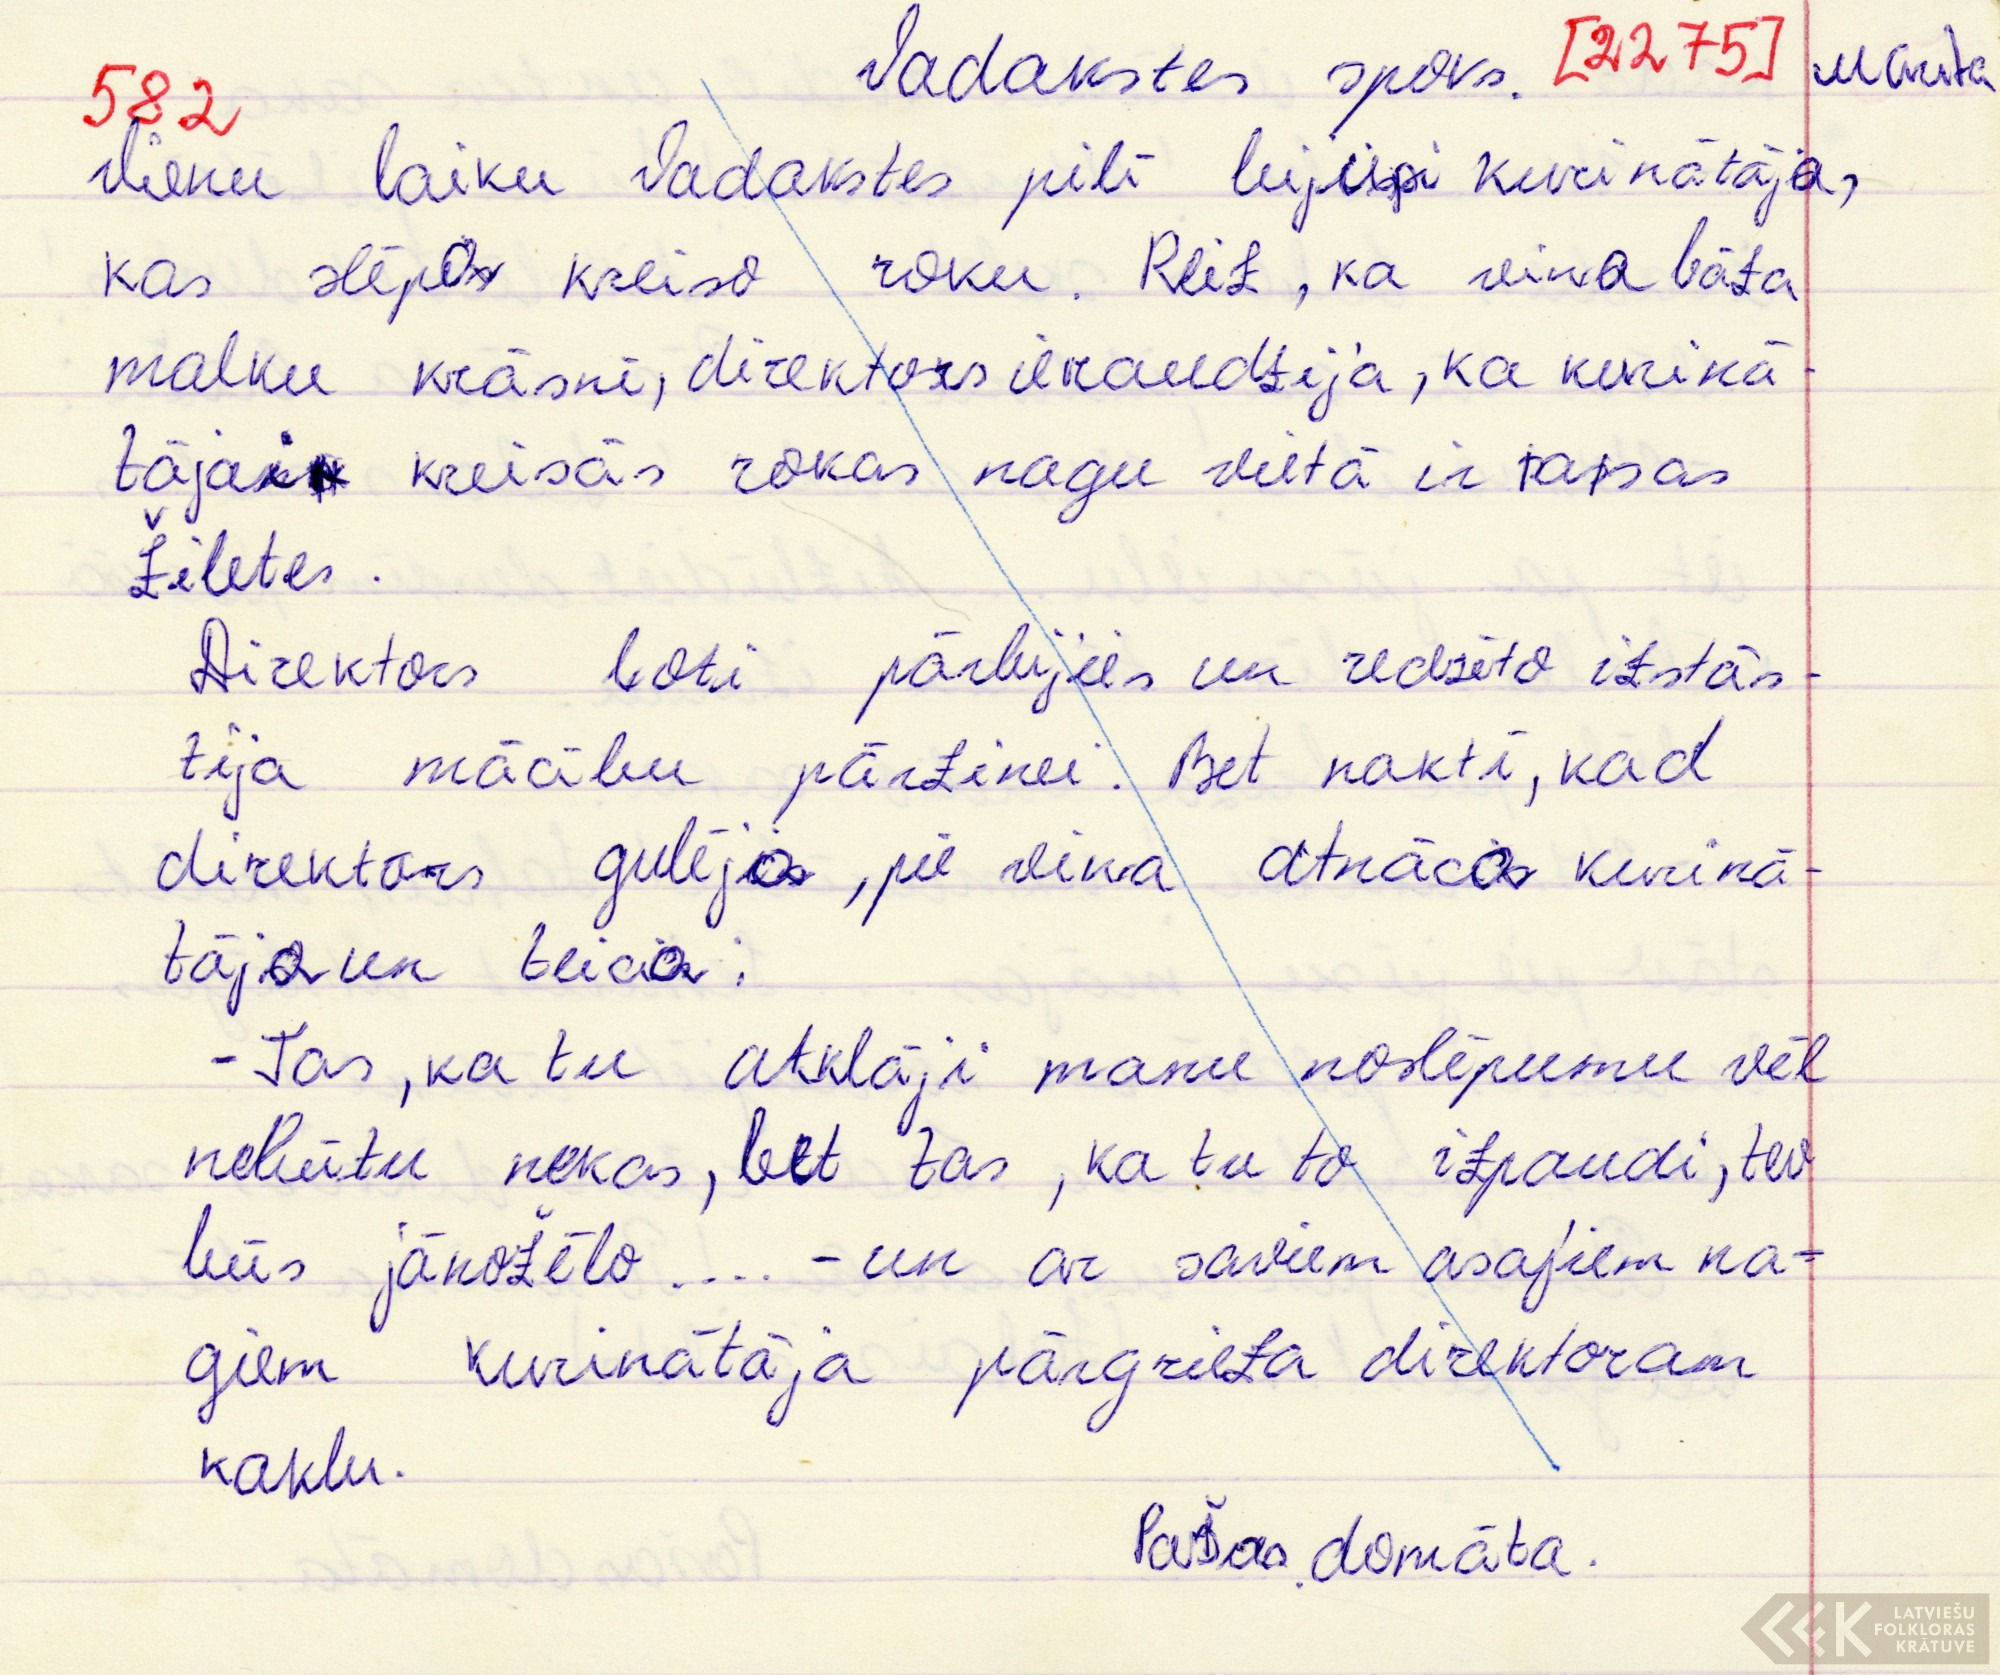 582 Vadakstes spoks. [2275] Marita
Vienu laiku Vadakstes pilī bija kurinātāja,
kas slēpa kreiso roku. Reiz, ka viņa bāza
malku krāsnī, direktors ieraudzīja, ka kurinā-
tājai kreisās rokas nagu vietā ir asas
žiletes.
Direktors loti pārbijies un redzēto izstās-
tīja mācību pārzinei. Bet naktī, kad
direktors gulēja, pie viņa atnāca kurinā-
tāja un teica:
- Tas, ka tu atklāji manu noslēpumu vēl
nebūtu nekas, bet tas, ka tu to izpaudi, tev
būs jānožēlo .... - un ar saviem asajiem na-
giem kurinātāja pārgrieza direktoram
kaklu.
Pašas domāta.
LATVIEŠU
FOLKLORAS
KRĀTUVE